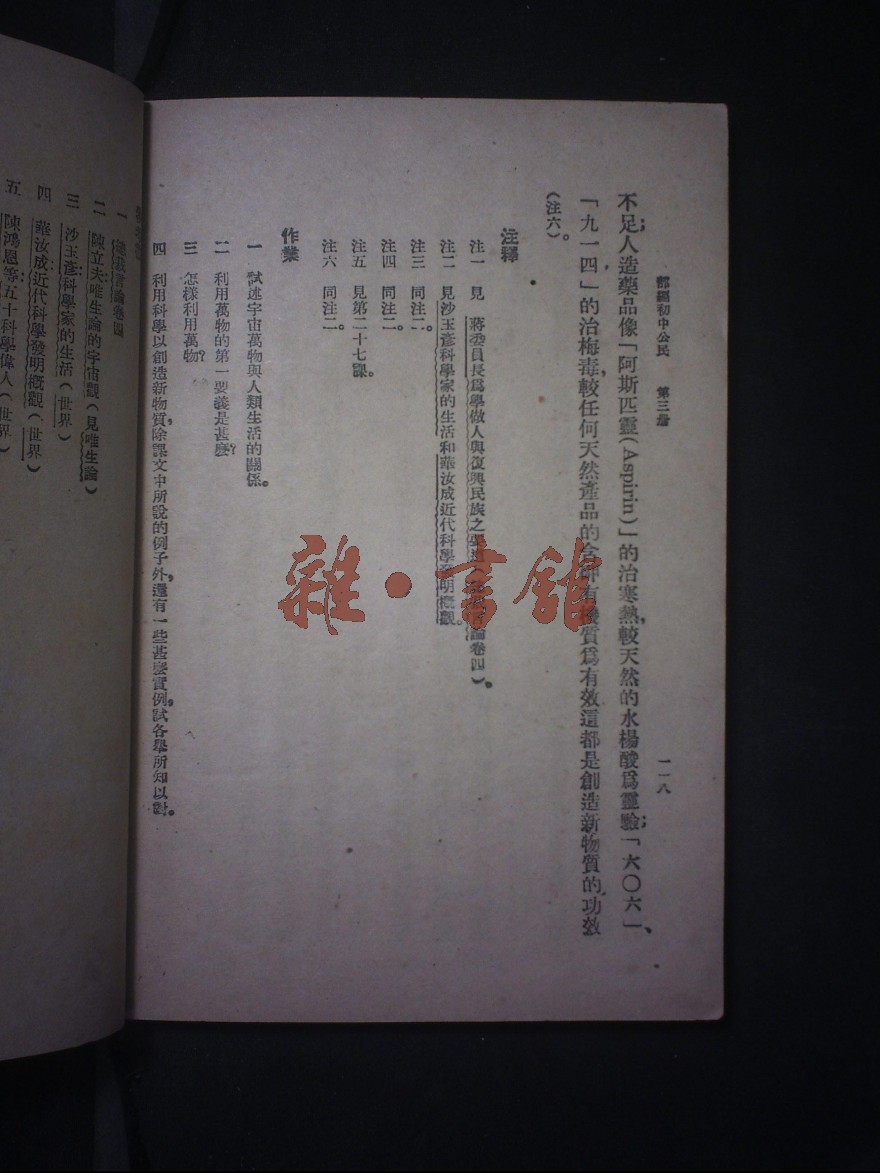 部編初中公民　第三冊
一一八
不足;人造藥品像「阿斯匹靈(Aspirin)」的治寒熱,較天然的水楊酸爲靈驗;「六〇六」、
「九一四」的治梅毒,較任何天然產品的含砒有機質爲有效,這都是創造新物質的功效
(注六)。
注釋
注一　見　蔣委員長爲學做人與復興民族之要道
卷四)。
注二　見沙玉彥科學家的生活和華汝成近代科學發明概觀。
注三　同注二。
注四　同注二。
注五　見第二十七課。
注六　同注二。
作業
一　試述宇宙萬物與人類生活的關係。
二　利用萬物的第一要義是甚麼?
三　怎樣利用萬物?
四　利用科學以創造新物質,除課文中所說的例子外,還有一些甚麼實例,試各舉所知以對。
一
書論卷四
二　陳立夫唯生論的宇宙觀(見唯生論)
三　沙玉彥科學家的生活(世界)
四　華汝成近代科學發明概觀(世界)
五　陳鴻恩等五十科學偉人(世界)
雜·書館